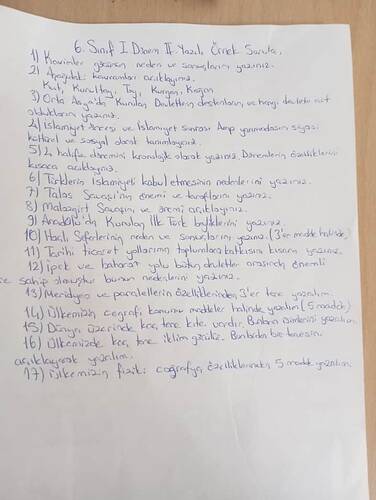 6. Sınıf I. Dönem II. Yazılı Örnek Sorular
1) Kavimler göçünün neden ve sonuçlarını yazınız.
2) Aşağıdaki kavramları açıklayınız.
Kut, Kurultay, Toy, Kurgan, Kağan
3) Orta Asya'da Kurulan Devletlerin destanlarını ve hangi devlete ait
olduklarını yazınız.
4) İslamiyet öncesi ve İslamiyet sonrası Arap yarımadasını siyasi
kültürel ve sosyal olarak tanımlayınız.
5) 4 halife dönemini kronolojik olarak yazınız. Dönemlerin özelliklerini
kısaca açıklayınız.
6) Türklerin İslamiyeti kabul etmesinin nedenlerini yazınız.
7) Talas Savaşı'nın önemi ve taraflarını yazınız.
8) Malazgirt Savaşını ve önemi açıklayınız.
9) Anadolu'da Kurulan İlk Türk beyliklerini yazınız.
10) Haçlı Seferlerinin neden ve sonuçlarını yazınız. (3'er madde halinde)
11) Tarihi ticaret yollarının toplumlara katkısını kısaca yazınız.
12) İpek ve baharat yolu bütün devletler arasında önemli
sahip olmuştur bunun nedenlerini yazınız.
13) Meridyen ve paralellerin özelliklerinden 3'er tane yazalım.
14) Ülkemizin coğrafi konumu maddeler halinde yazalım (5 madde)
15) Dünya üzerinde kaç tane kıta vardır. Bunların isimlerini yazalım.
16) Ülkemizde kaç tane iklim görülür. Bunlardan bir tanesini
açıklayarak yazalım.
17) Ülkemizin fiziki coğrafya özelliklerinden 5 madde yazalım.